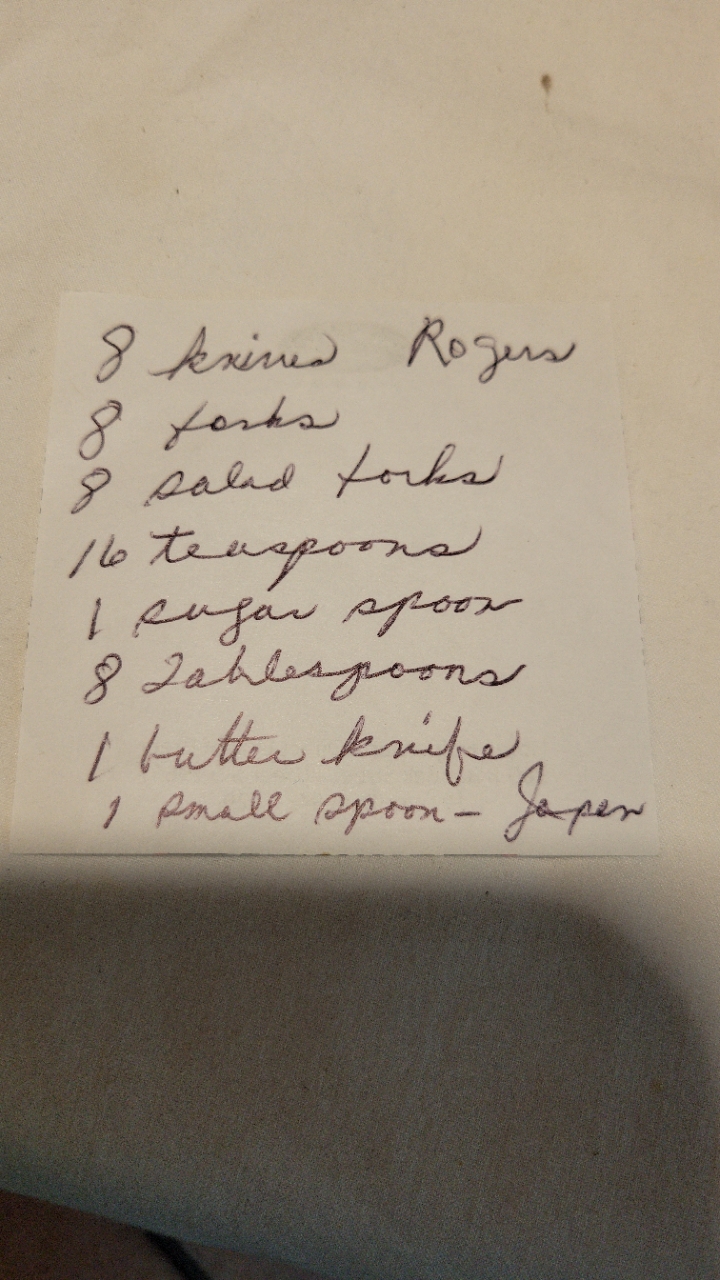 8 knives Rogers
8 forks
8 salad forks
16 teaspoons
1 sugar spoon
8 Tablespoons
1 butter knife
1 small spoon – Japan